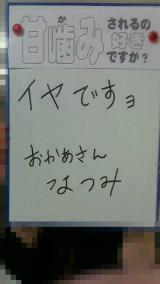 甘噛み されるの
好き
ですか?
イヤですョ
おかあさん
なつみ